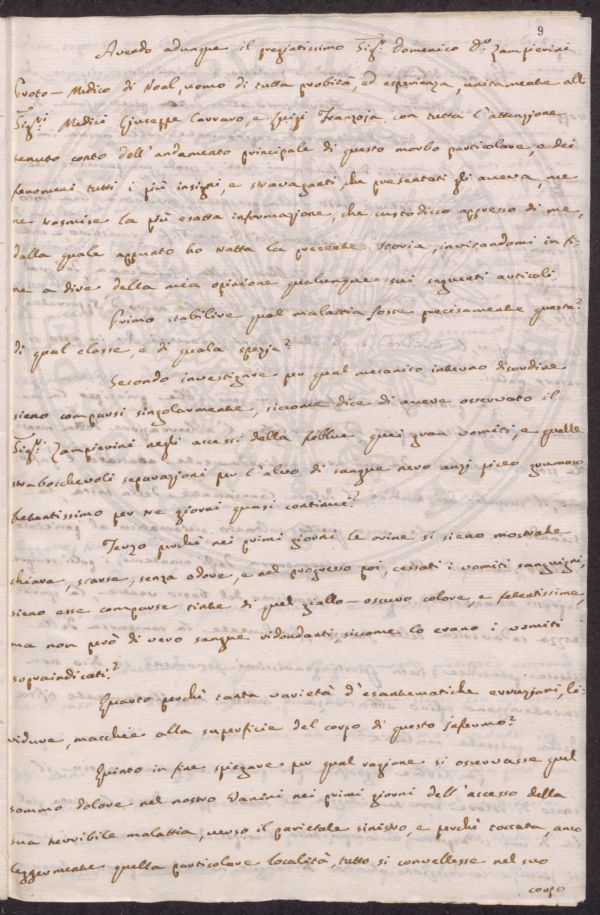 9
Avendo adunque il pregiatissimo Sig.r Domenico D.r Zampierini
Proto-Medico di Noal, uomo di tutta probità, ed esperienza, unitamente alli
Sig.ri Medici Giuseppe Carraro, e Luigi Franzoja con tutta l'attenzione
tenuto conto dell'andamento principale di questo morbo particolare, e dei
fenomeni tutti i più insigni, e stravaganti, che presentati gli aveva, me
ne trasmise la più esatta informazione, che custodisco appresso di me,
dalla quale appunto ho tratta la presente storia, invitandomi in fi-
ne a dire della mia opinione qualunque sui seguenti articoli.
Primo stabilire qual malattia fosse precisamente questa?
di qual classe, e di quale spezie?
Secondo investigare per qual mecanico interno disordine
sieno comparsi singolarmente, siccome dice di avere osservato il
Sig.r Zampierini negli accessi della febbre quei gran vomiti, e quelle
strabocchevoli separazioni per l'alvo di sangue nero anzi piceo grumoso
fetentissimo per tre giorni quasi continui?
Terzo perchè nei primi giorni le orine si sieno mostrate
chiare, scarse, senza odore, e nel progresso poi, cessati i vomiti sanguigni,
sieno esse comparse tinte di quel giallo-oscuro colore, e fetentissime,
ma non però di vero sangue ridondanti siccome lo erano i vomiti
sopraindicati?
Quarto perchè tanta varietà d'esantematiche eruzioni, li-
vidure, macchie alla superficie del corpo di questo Infermo?
Quinto in fine spiegare per qual ragione si osservasse quel
sommo dolore nel nostro Vanini nei primi giorni dell'accesso della
sua terribile malattia, verso il parietale sinistro, e perchè toccata, anco
leggermente quella particolare località, tutto si convellesse nel suo
corpo